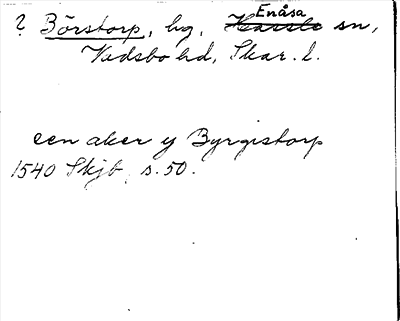 ? Börstorp, hg, Enåsa sn,
Vadsbo hd, Skar. l.
een aker y Byrgistorp
1540 Skjb s. 50.